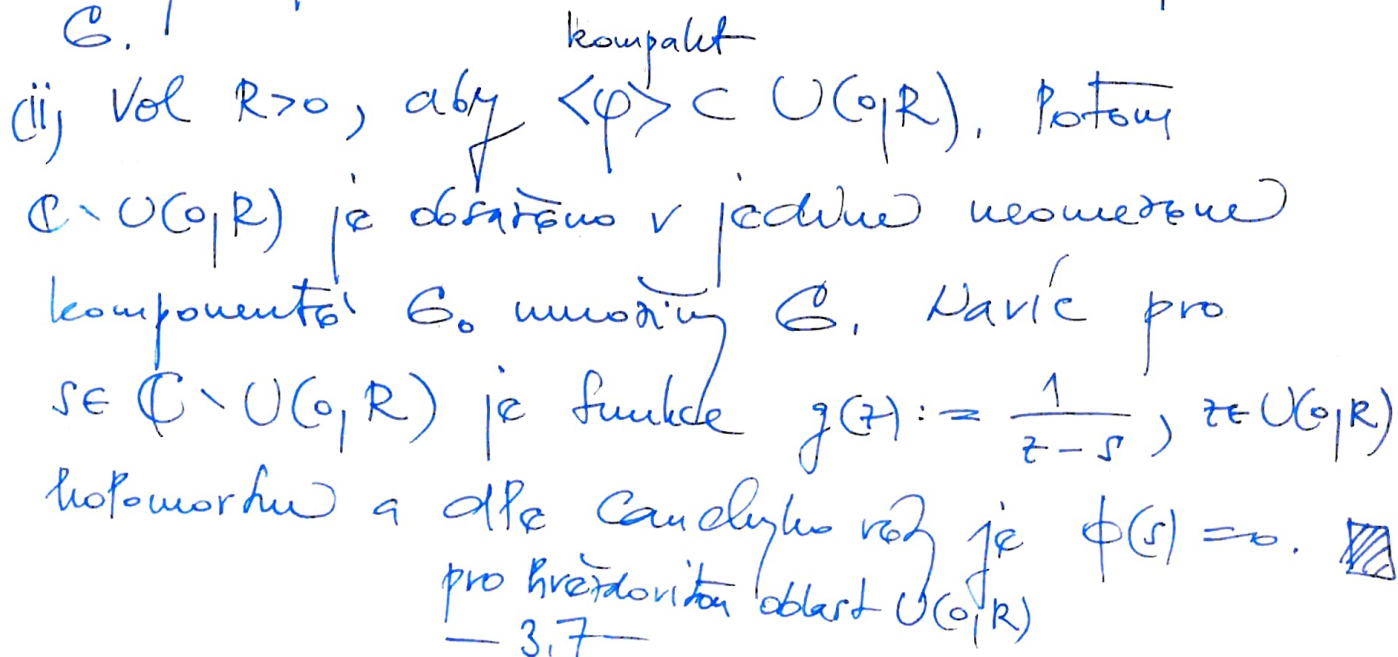 G.
kompakt
(ii) Vol R>0, aby <φ> ⊂ U(0,R). Potom
ℂ∖U(0,R) je obsaženo v jediné neomezené
komponentě G₀ množiny G. Navíc pro
s∈ ℂ∖U(0,R) je funkce g(z) := 1/(z-s), z∈U(0,R)
holomorfní a dle Cauchyho věty je ϕ(s)=0.
pro hvězdovitou oblast U(0,R)
— 3.7 —